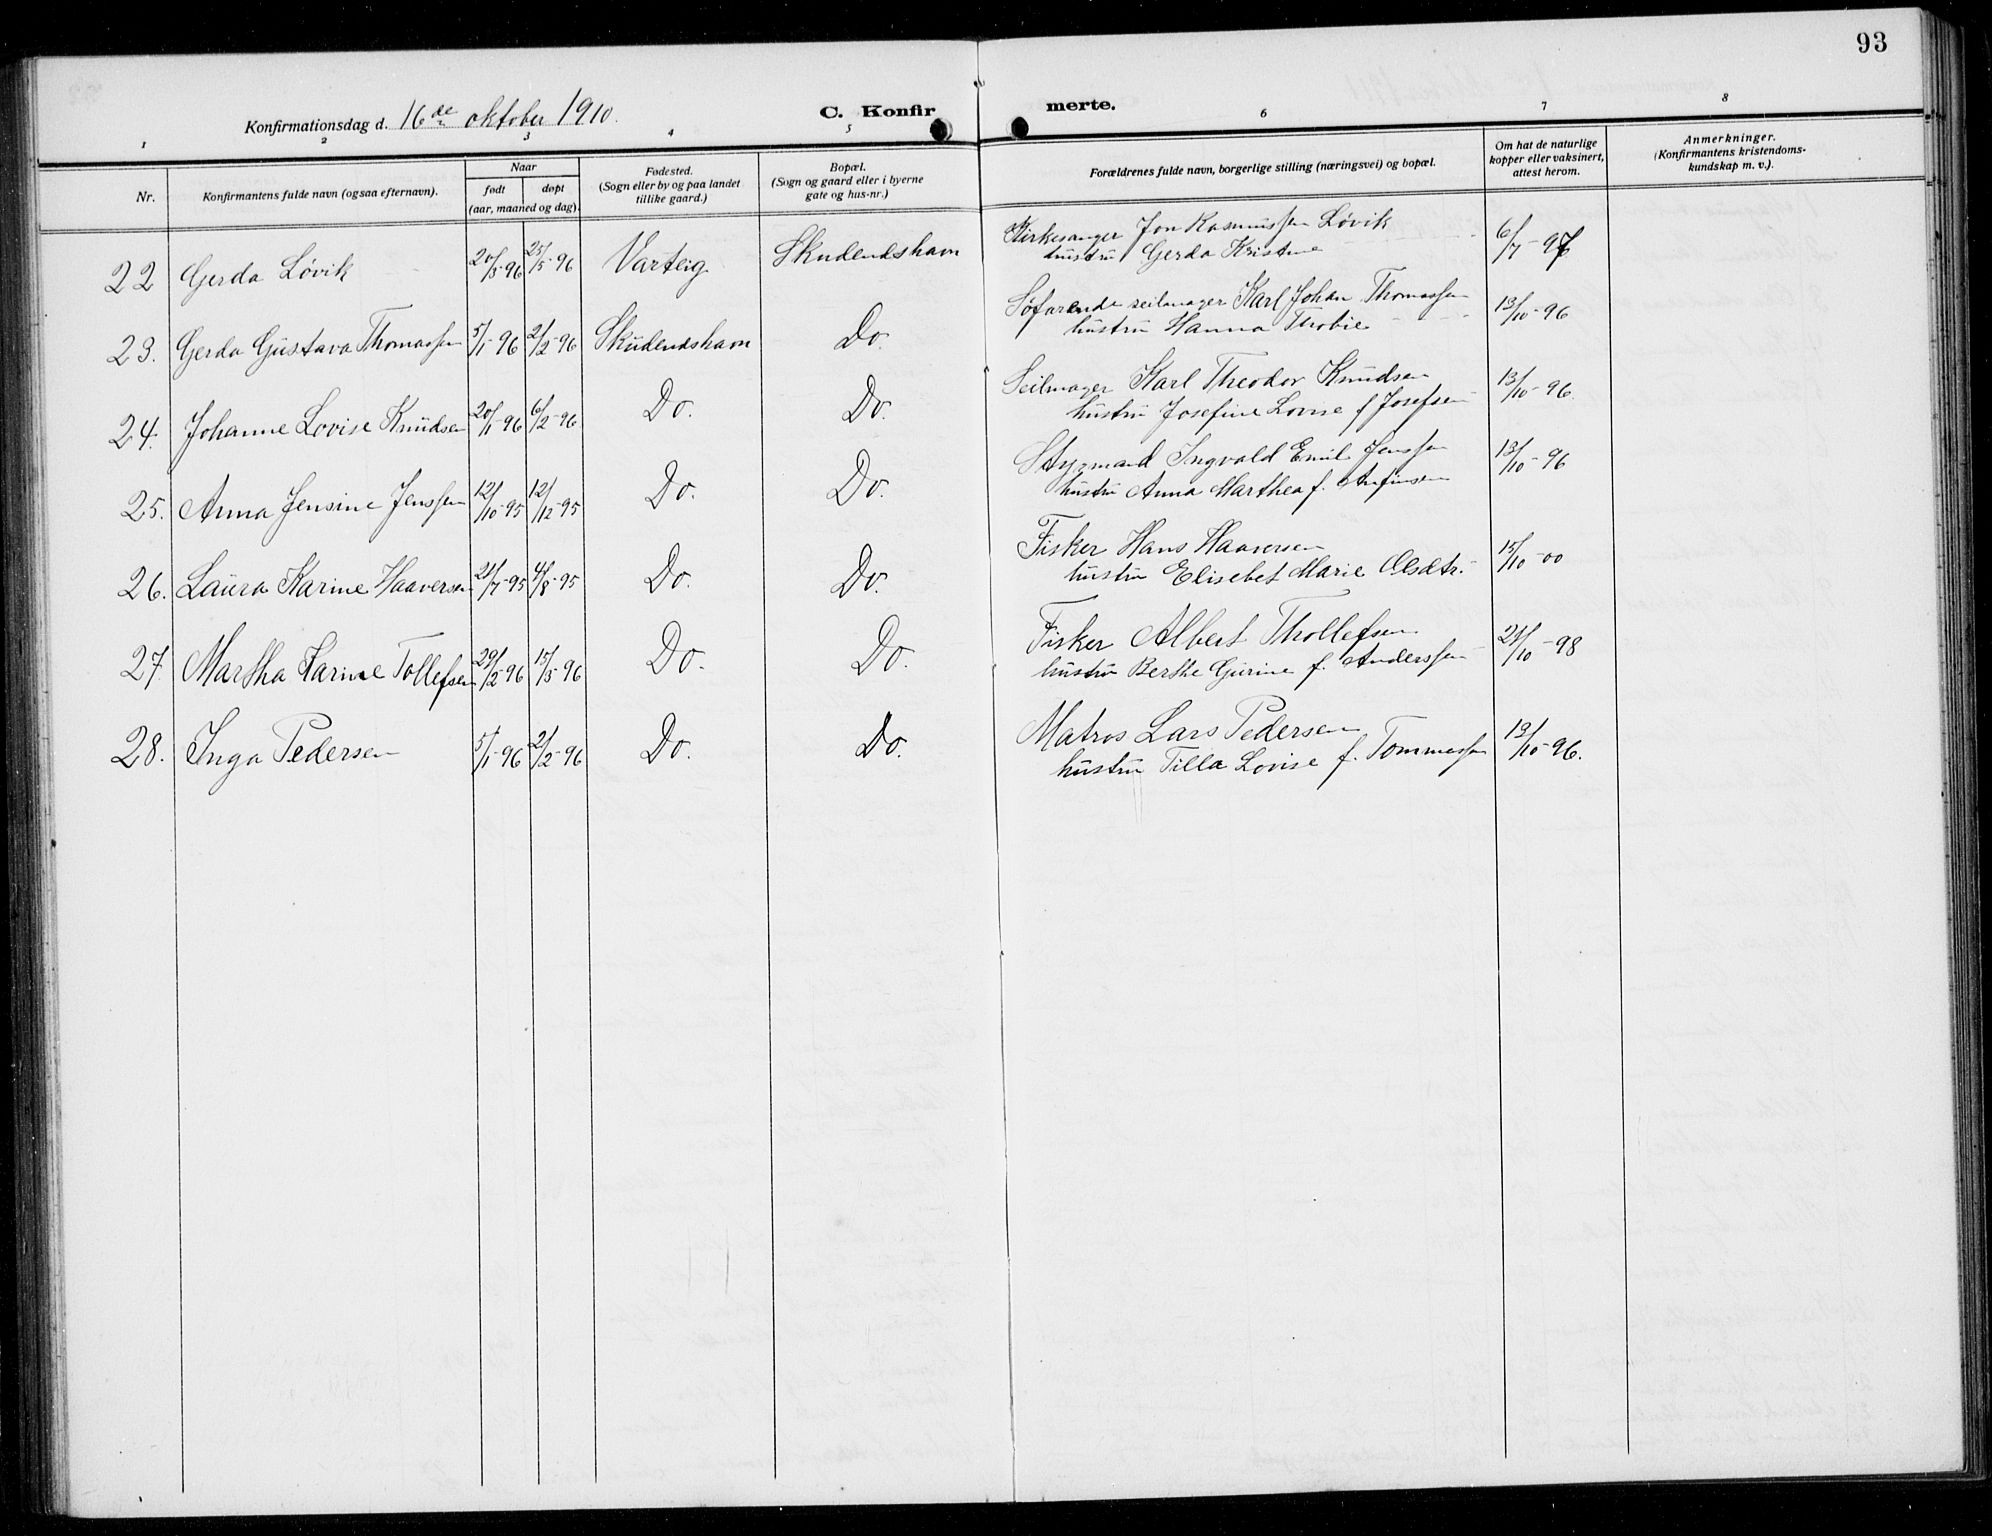 93
Konfirmationsdag d. 16de oktober 1910.
C. Konfirmerte.
1 2 3 4 5 6 7 8
Nr.
Konfirmantens fulde navn (ogsaa efternavn).
Naar
født
døpt
(aar, maaned og dag).
Fødested.
(Sogn eller by og paa landet
tillike gaard.)
Bopæl.
(Sogn og gaard eller i byerne
gate og hus-nr.)
Forældrenes fulde navn, borgerlige stilling (næringsvei) og bopæl.
Om hat de naturlige
kopper eller vaksinert,
attest herom.
Anmerkninger.
(Konfirmantens kristendoms-
kundskap m. v.).
22 Gerda Løvik 20/3-96 25/5-96 Varteig Skudeneshavn Kirkesanger Jon Rasmussen Løvik 6/7-97
hustru Gerda Kristine
23. Gerda Gustava Thomassen 5/1-96 2/2-96 Skudeneshavn Do. Søfarende seilmager Karl Johan Thomassen 13/10-96
hustru Hanna Thobie
24. Johanne Lovise Knudsen 20/1-96 6/2-96 Do. Do. Seilmager Karl Theodor Knudsen 13/10-96
hustru Josefine Lovise f Josefsen
25. Anna Jensine Jenssen 12/10-95 12/12-95 Do. Do. Styrmand Ingvald Emil Jenssen 13/10-96
hustru Anna Marthea f. Anfinsen
26. Laura Karine Haaversen 21/7-95 4/8-95 Do. Do. Fisker Hans Haaversen 15/10-00
hustru Elisebet Marie Olsdtr.
27. Martha Karine Tollefsen 29/2-96 15/3-96 Do. Do. Fisker Albert Thollefsen 21/10-98
hustru Berthe Gurine f. Anderssen
28. Inga Pedersen 5/1-96 2/2-96 Do. Do. Matros Lars Pedersen 13/10-96.
hustru Tilla Lovise f. Tommassen